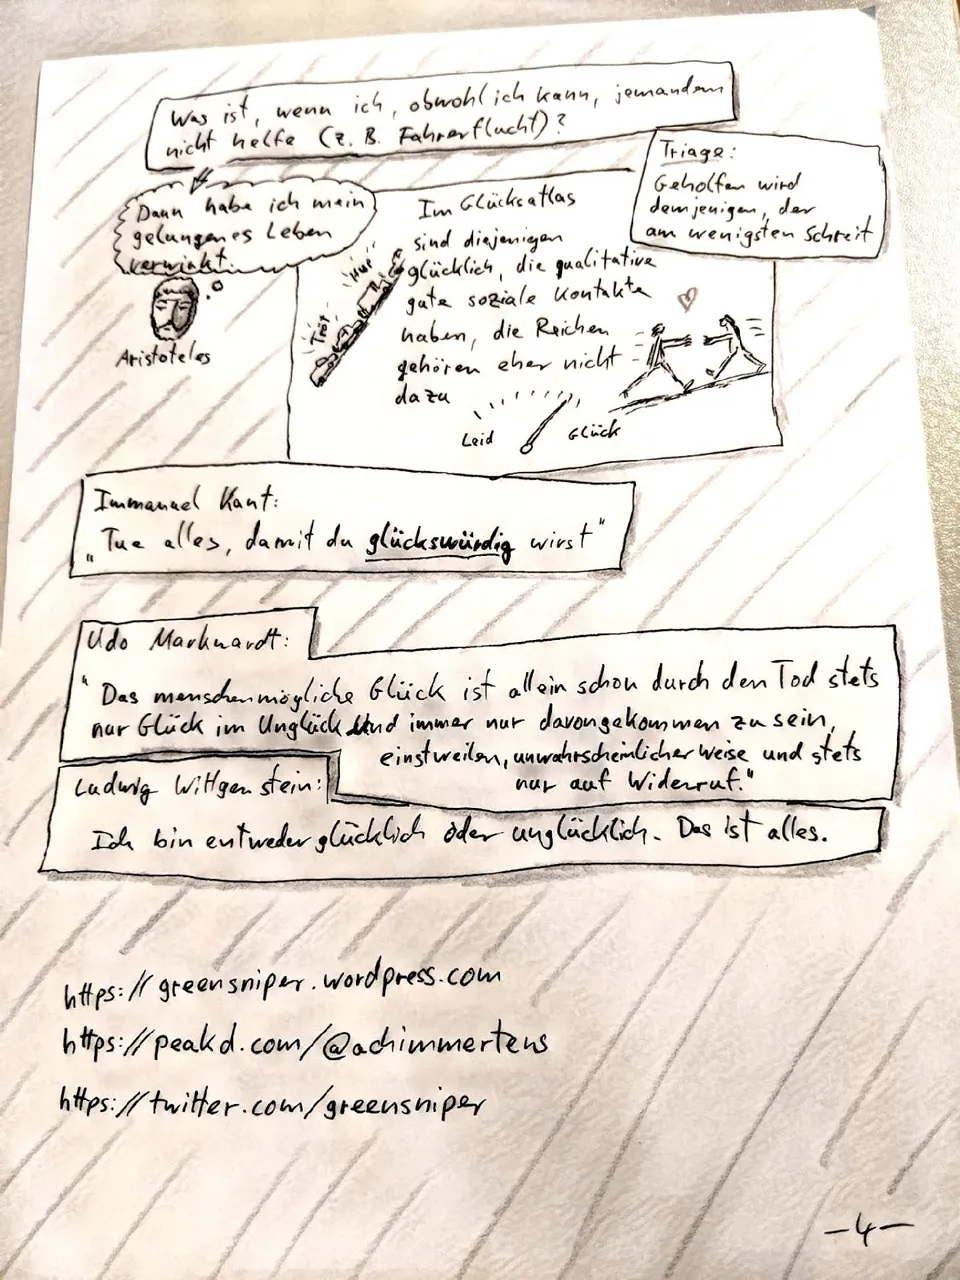 Was ist, wenn ich, obwohl ich kann, jemandem
nicht helfe (z. B. Fahrerflucht)?
Triage:
Geholfen wird
demjenigen, der
am wenigsten Schreit
Dann habe ich mein
gelungenes Leben
verwirkt.
Aristoteles
Im Glücksatlas
sind diejenigen
glücklich, die qualitative
gute soziale Kontakte
haben, die Reichen
gehören eher nicht
dazu
Hup
Tröt
Leid
Glück
Immanuel Kant:
„Tue alles, damit du glückswürdig wirst"
Udo Marknardt:
"Das menschenmögliche Glück ist allein schon durch den Tod stets
nur Glück im Unglück und immer nur davongekommen zu sein,
einstweilen, unwahrscheinlicher weise und stets
nur auf Widerruf."
Ludwig Wittgenstein:
Ich bin entweder glücklich oder unglücklich. Das ist alles.
https://greensniper.wordpress.com
https://peakd.com/@achimmertens
https://twitter.com/greensniper
-4-